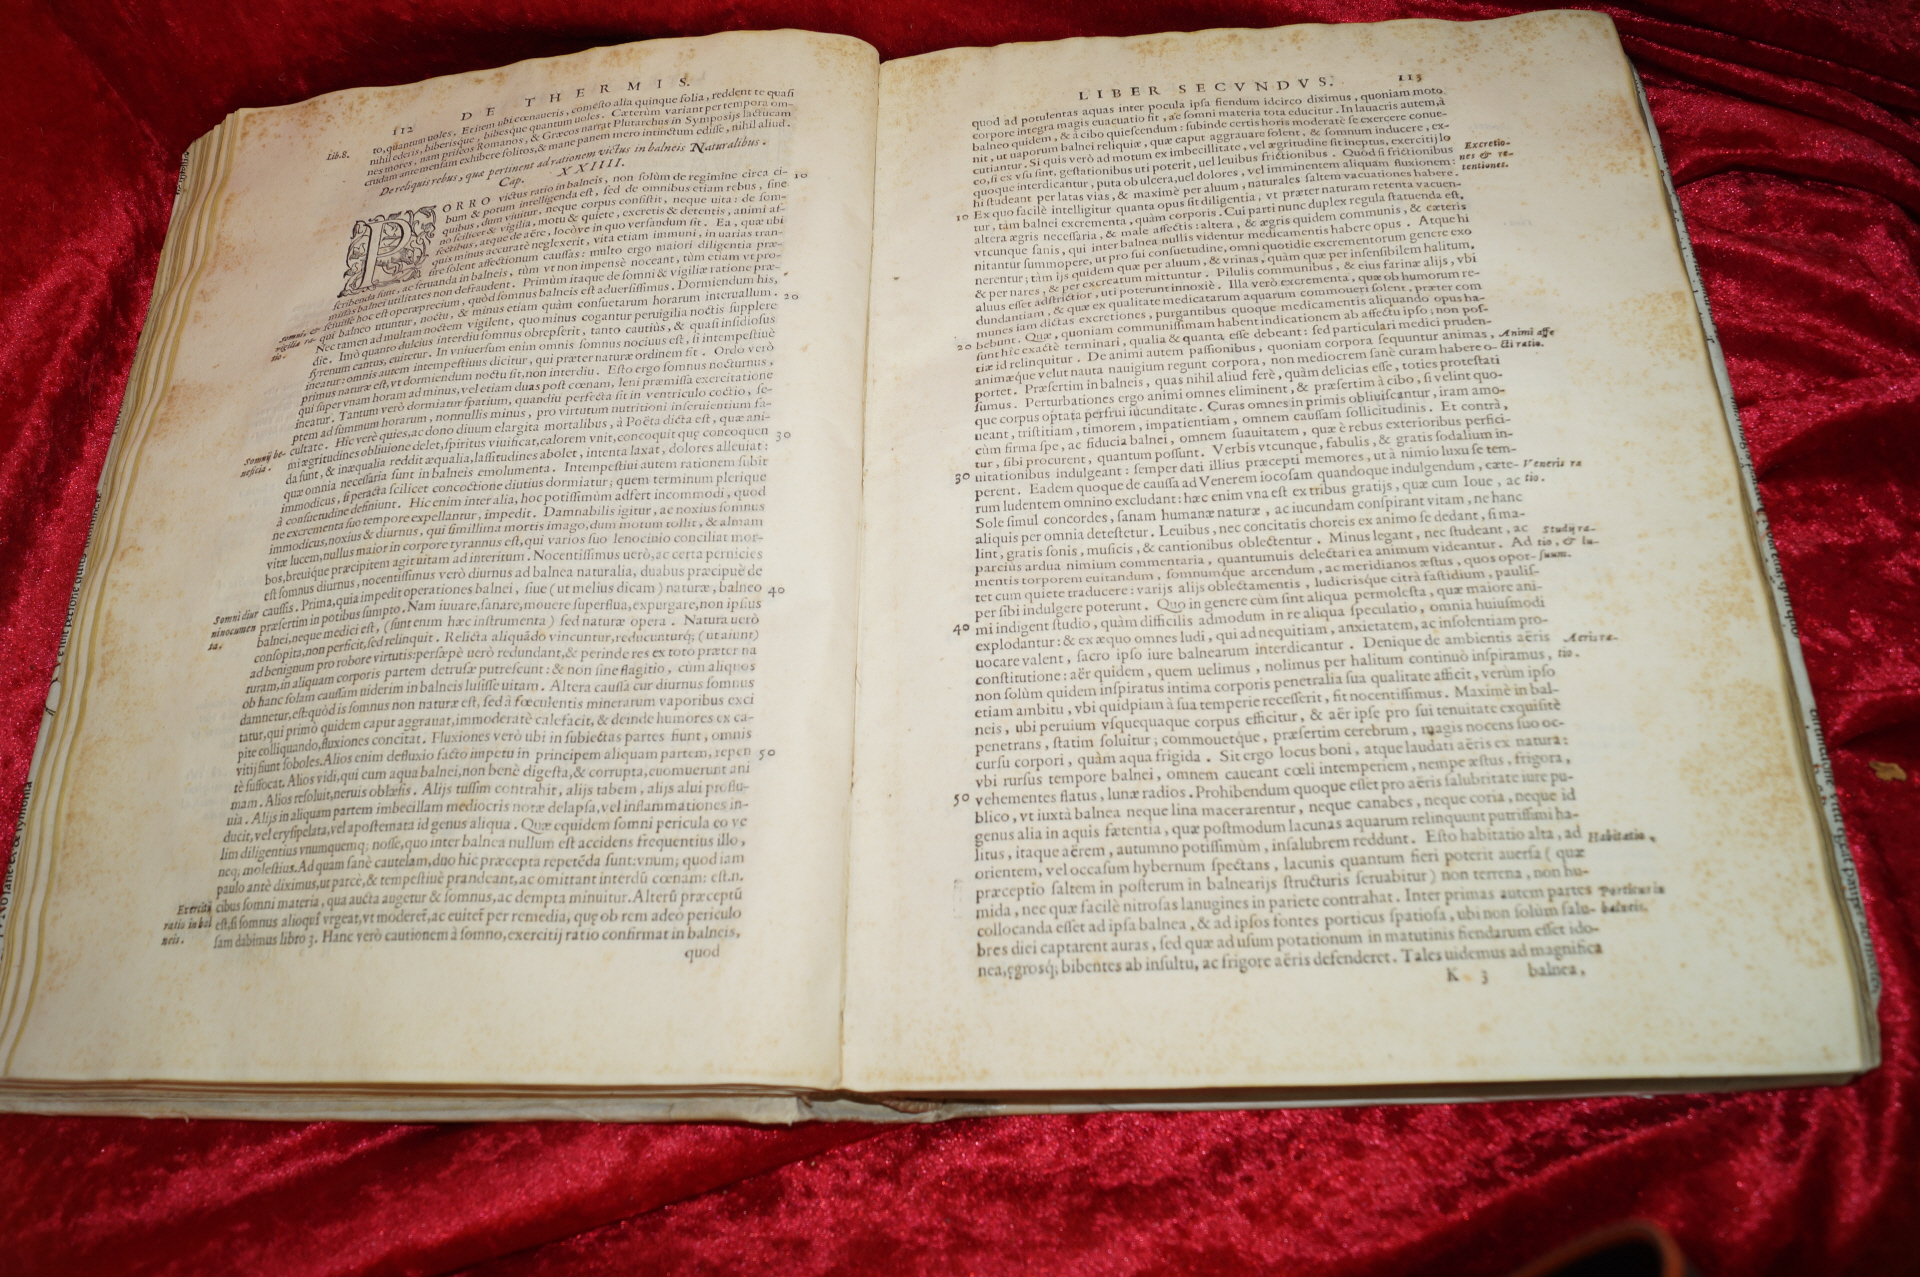 112
DE THERMIS.
to, quantum uoles. Et item ubi cœnaueris, comesto assa quinque folia, reddent te quasi
nihil ederis, biberisque, bibesque quantum uoles. Cæterùm variant per tempora om-
nes mores, nam priscos Romanos, & Græcos narrat Plutarchus in Symposijs lactucam
crudam ante mensam exhibere solitos, & mane panem mero intinctum edisse, nihil aliud.
Lib.8.
De reliquis rebus, quæ pertinent ad rationem victus in balneis Naturalibus.
Cap. XXIIII.
PORRO victus ratio in balneis, non solùm de regimine circa ci-
10
bum & potum intelligenda est, sed de omnibus etiam rebus, sine
quibus, dum viuitur, neque corpus consistit, neque uita: de som-
no scilicet & vigilia, motu & quiete, excretis & detentis, animi af-
fectibus, atque de aëre, locóve in quo versandum sit. Ea, quæ ubi
quis minus accuratè neglexerit, vita etiam immuni, in uarias tran-
sire solent affectionum caussas: multo ergo maiori diligentia præ-
scribenda sunt, ac seruanda in balneis, tùm vt non impensè noceant, tùm etiam vt pro-
missas balnei utilitates non defraudent. Primùm itaque de somni & vigiliæ ratione præ-
sensisse hoc est operæprecium, quòd somnus balneis est aduersissimus. Dormiendum his,
qui balneo utuntur, noctu, & minus etiam quàm consuetarum horarum interuallum.
20
Somni, & vigiliæ ratio.
Nec tamen ad multam noctem vigilent, quo minus cogantur peruigilia noctis supplere
die. Imò quanto dulcius interdiu somnus obrepserit, tanto cautiùs, & quasi insidiosus
syrenum cantus, euitetur. In vniuersum enim omnis somnus nociuus est, si intempestiuè
ineatur: omnis autem intempestiuus dicitur, qui præter naturæ ordinem fit. Ordo verò
primus naturæ est, vt dormiendum noctu sit, non interdiu. Esto ergo somnus nocturnus,
qui super vnam horam ad minus, vel etiam duas post cœnam, leni præmissa exercitatione
ineatur. Tantum verò dormiatur spatium, quandiu perfecta sit in ventriculo coctio, se-
ptem ad summum horarum, nonnullis minus, pro virtutum nutritioni inseruientium fa-
cultate. Hic verè quies, ac dono diuum elargita mortalibus, à Poëta dicta est, quæ ani-
Somnij be-
neficia.
mi ægritudines obliuione delet, spiritus viuificat, calorem vnit, concoquit quę concoquen
30
da sunt, & inæqualia reddit æqualia, lassitudines abolet, intenta laxat, dolores alleuiat:
quæ omnia necessaria sunt in balneis emolumenta. Intempestiui autem rationem subit
immodicus, si peracta scilicet concoctione diutius dormiatur; quem terminum plerique
à consuetudine definiunt. Hic enim inter alia, hoc potissimùm adfert incommodi, quod
ne excrementa suo tempore expellantur, impedit. Damnabilis igitur, ac noxius somnus
immodicus, noxius & diurnus, qui simillima mortis imago, dum motum tollit, & almam
vitæ lucem, nullus maior in corpore tyrannus est, qui varios suo lenocinio conciliat mor-
bos, breuique præcipitem agit uitam ad interitum. Nocentissimus uerò, ac certa pernicies
est somnus diurnus, nocentissimus verò diurnus ad balnea naturalia, duabus præcipuè de
caussis. Prima, quia impedit operationes balnei, siue (ut melius dicam) naturæ, balneo
40
Somni diur
ni nocumen
ta.
præsertim in potibus sumpto. Nam iuuare, sanare, mouere superflua, expurgare, non ipsius
balnei, neque medici est, (sunt enum hæc instrumenta) sed naturæ opera. Natura uerò
consopita, non perficit, sed relinquit. Relicta aliquādo vincuntur, reducunturq; (ut aiunt)
ad benignum pro robore virtutis: persæpè uerò redundant, & perinde res ex toto præter na
turam, in aliquam corporis partem detrusæ putrescunt: & non sine flagitio, cùm aliquos
ob hanc solam caussam uiderim in balneis lusisse uitam. Altera caussa cur diurnus somnus
damnetur, est: quòd is somnus non naturæ est, sed à fœculentis minerarum vaporibus exci
tatur, qui primò quidem caput aggrauat, immoderatè calefacit, & deinde humores ex ca-
pite colliquando, fluxiones concitat. Fluxiones verò ubi in subiectas partes fiunt, omnis
vitij fiunt soboles. Alios enim defluxio facto impetu in principem aliquam partem, repen
50
tè suffocat. Alios vidi, qui cum aqua balnei, non benè digesta, & corrupta, euomuerunt ani
mam. Alios resoluit, neruis oblæsis. Alijs tussim contrahit, alijs tabem, alijs alui proflu-
uia. Alijs in aliquam partem imbecillam mediocris notæ delapsa, vel inflammationes in-
ducit, vel erysipelata, vel apostemata id genus aliqua. Quæ equidem somni pericula eo ve
lim diligentius vnumquemq; nosse, quo inter balnea nullum est accidens frequentius illo,
neq; molestius. Ad quam sanè cautelam, duo hic præcepta repetēda sunt: vnum; quod iam
paulo antè diximus, ut parcè, & tempestiuè prandeant, ac omittant interdū cœnam: est.n.
cibus somni materia, qua aucta augetur & somnus, ac dempta minuitur. Alterū præceptū
Exercitij
ratio in bal
neis.
est, si somnus alioquī vrgeat, vt moderet̄, ac euitet̄ per remedia, quę ob rem adeò periculo
sam dabimus libro 3. Hanc verò cautionem à somno, exercitij ratio confirmat in balneis,
quod
LIBER SECVNDVS.
113
quod ad potulentas aquas inter pocula ipsa fiendum idcirco diximus, quoniam moto
corpore integra magis euacuatio fit, ac somni materia tota educitur. In lauacris autem, à
balneo quidem, & à cibo quiescendum: subinde certis horis moderatè se exercere conue-
nit, ut uaporum balnei reliquiæ, quæ caput aggrauare solent, & somnum inducere, ex-
cutiantur. Si quis verò ad motum ex imbecillitate, vel ægritudine sit ineptus, exercitij lo
co, si ex vsu sint, gestationibus uti poterit, uel leuibus frictionibus. Quòd si frictionibus
Excretio-
nes & re-
tentiones.
quoque interdicantur, puta ob ulcera, uel dolores, vel imminentem aliquam fluxionem:
hi studeant per latas vias, & maximè per aluum, naturales saltem vacuationes habere.
Ex quo facilè intelligitur quanta opus sit diligentia, vt præter naturam retenta vacuen-
10
tur, tàm balnei excrementa, quàm corporis. Cui parti nunc duplex regula statuenda est,
altera ægris necessaria, & male affectis: altera, & ægris quidem communis, & cæteris
vtcunque sanis, qui inter balnea nullis videntur medicamentis habere opus. Atque hi
nitantur summopere, ut pro sui consuetudine, omni quotidie excrementorum genere exo
nerentur: tùm ijs quidem quæ per aluum, & vrinas, quàm quæ per insensibilem halitum,
& per nares, & per excreatum mittuntur. Pilulis communibus, & eius farinæ alijs, vbi
aluus esset adstrictior, uti poterunt innoxiè. Illa verò excrementa, quæ ob humorum re-
dundantiam, & quæ ex qualitate medicatarum aquarum commoueri solent, præter com
munes iam dictas excretiones, purgantibus quoque medicamentis aliquando opus ha-
bebunt. Quæ, quoniam communissimam habent indicationem ab affectu ipso; non pos-
20
sunt hic exactè terminari, qualia & quanta esse debeant: sed particulari medici pruden-
tiæ id relinquitur. De animi autem passionibus, quoniam corpora sequuntur animas,
Animi affe
cti ratio.
animæque velut nauta nauigium regunt corpora, non mediocrem sanè curam habere o-
portet. Præsertim in balneis, quas nihil aliud ferè, quàm delicias esse, toties protestati
sumus. Perturbationes ergo animi omnes eliminent, & præsertim à cibo, si velint quo-
que corpus optata perfrui iucunditate. Curas omnes in primis obliuiscantur, iram amo-
ueant, tristitiam, timorem, impatientiam, omnem caussam sollicitudinis. Et contrà,
cùm firma spe, ac fiducia balnei, omnem suauitatem, quæ è rebus exterioribus perfici-
tur, sibi procurent, quantum possunt. Verbis vtcunque, fabulis, & gratis sodalium in-
uitationibus indulgeant: semper dati illius præcepti memores, ut à nimio luxu se tem-
30
perent. Eadem quoque de caussa ad Venerem iocosam quandoque indulgendum, cæte-
Veneris ra
tio.
rum ludentem omnino excludant: hæc enim vna est ex tribus gratijs, quæ cum Ioue, ac
Sole simul concordes, sanam humanæ naturæ, ac iucundam conspirant vitam, ne hanc
aliquis per omnia detestetur. Leuibus, nec concitatis choreis ex animo se dedant, si ma-
lint, gratis sonis, musicis, & cantionibus oblectentur. Minus legant, nec studeant, ac
Studij ra-
tio, & lu-
suum.
parcius ardua nimium commentaria, quantumuis delectari ea animum videantur. Ad
mentis torporem euitandum, somnumque arcendum, ac meridianos æstus, quos opor-
tet cum quiete traducere: varijs alijs oblectamentis, ludicrisque citrà fastidium, paulis-
per sibi indulgere poterunt. Quo in genere cùm sint aliqua permolesta, quæ maiore ani-
mi indigent studio, quàm difficilis admodum in re aliqua speculatio, omnia huiusmodi
40
explodantur: & ex æquo omnes ludi, qui ad nequitiam, anxietatem, ac insolentiam pro-
uocare valent, sacro ipso iure balnearum interdicantur. Denique de ambientis aëris
Aeris ra-
tio.
constitutione: aër quidem, quem uelimus, nolimus per halitum continuò inspiramus,
non solùm quidem inspiratus intima corporis penetralia sua qualitate afficit, verùm ipso
etiam ambitu, vbi quidpiam à sua temperie recesserit, fit nocentissimus. Maximè in bal-
neis, ubi peruium vsquequaque corpus efficitur, & aër ipse pro sui tenuitate exquisitè
penetrans, statim soluitur; commouetque, præsertim cerebrum, magis nocens suo oc-
cursu corpori, quàm aqua frigida. Sit ergo locus boni, atque laudati aëris ex natura:
vbi rursus tempore balnei, omnem caueant cœli intemperiem, nempe æstus, frigora,
vehementes flatus, lunæ radios. Prohibendum quoque esset pro aëris salubritate iure pu-
50
blico, vt iuxtà balnea neque lina macerarentur, neque canabes, neque coria, neque id
genus alia in aquis fætentia, quæ postmodum lacunas aquarum relinquent putrissimi ha-
litus, itaque aërem, autumno potissimùm, insalubrem reddunt. Esto habitatio alta, ad
Habitatio.
orientem, vel occasum hybernum spectans, lacunis quantum fieri poterit auersa (quæ
præceptio saltem in posterum in balnearijs structuris seruabitur) non terrena, non hu-
mida, nec quæ facilè nitrosas lanugines in pariete contrahat. Inter primas autem partes
Porticus in
balneis.
collocanda esset ad ipsa balnea, & ad ipsos fontes porticus spatiosa, ubi non solùm salu-
bres diei captarent auras, sed quæ ad usum potationum in matutinis fiendarum esset ido-
nea, ęgrosq; bibentes ab insultu, ac frigore aëris defenderet. Tales uidemus ad magnifica
K 3
balnea,